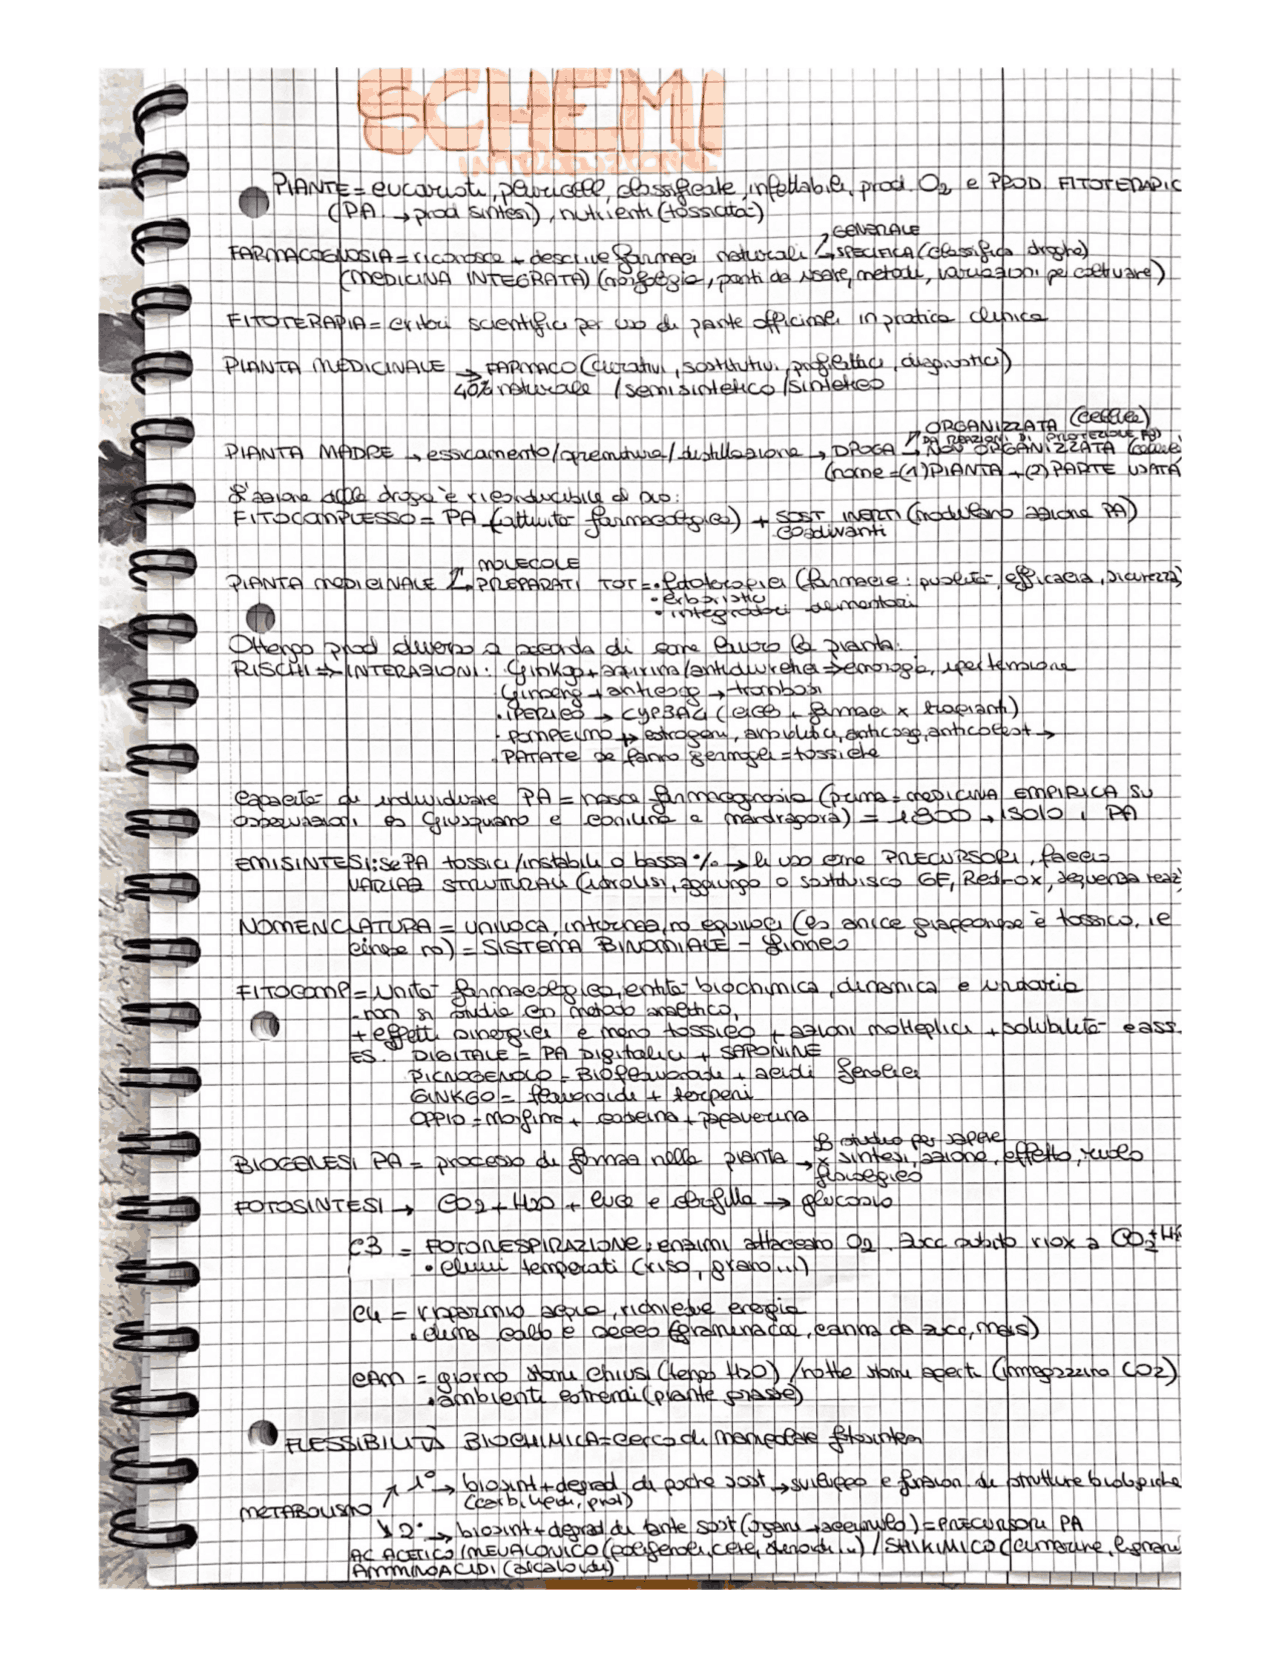 SCHEMI
INTRODUZIONE
PIANTE = eucarioti, pluricell, classificate, infettabili, prod. O2 e PROD. FITOTERAPIC
(PA → prod sintesi), nutrienti (tossicità)
GENERALE
FARMACOGNOSIA = riconosce + descrive farmaci naturali → SPECIFICA (classifica droghe)
(MEDICINA INTEGRATA) (morfologia, parti da usare, metodi, variazioni per coltivare)
FITOTERAPIA = criteri scientifici per uso di piante officinali in pratica clinica
PIANTA MEDICINALE → FARMACO (curativi, sostitutivi, profilattici, diagnostici)
40% naturale / semisintetico / sintetico
ORGANIZZATA (cellule)
DA REAZIONI DI PROTEZIONE
PIANTA MADRE → essiccamento/spremitura/distillazione → DROGA → NON ORGANIZZATA
(nome = (1) PIANTA + (2) PARTE USATA
L'azione della droga è riconducibile al suo:
FITOCOMPLESSO = PA (attività farmacologica) + SOST INERTI (modulano azione PA)
coadiuvanti
MOLECOLE
PIANTA MEDICINALE → PREPARATI TOT = • fitoterapici (farmacie: qualità, efficacia, sicurezza)
• erboristici
• integratori alimentari
Ottengo prod diverso a seconda di come lavoro la pianta.
RISCHI => INTERAZIONI: Ginkgo + aspirina/antidiuretici => emorragia, ipertensione
Ginseng + antiacog → trombosi
• IPERICO → CYP3A4 ( + farmaci x trapianti)
• POMPELMO → estrogeni, antibiotici, anticoag, anticolest →
• PATATE se fanno germogli = tossiche
Capacità di individuare PA = nasce farmacognosia (prima = MEDICINA EMPIRICA SU
osservazioni es Giusquiamo e cicuta e mandragora) = 1800 → ISOLO i PA
EMISINTESI: se PA tossici/instabili o bassa % → li uso come PRECURSORI, faccio
VARIAZ STRUTTURALI (idrolisi, aggiungo o sostituisco GF, Red-ox, sequenza reaz)
NOMENCLATURA = univoca, internaz, no equivoci (es anice giapponese è tossico, il
cinese no) = SISTEMA BINOMIALE - Linneo
FITOCOMP = Unità farmacologica, entità biochimica, dinamica e unitaria
- non si studia con metodo analitico,
+ effetti sinergici e meno tossico + azioni molteplici + solubilità e ass.
ES. DIGITALE = PA Digitalici + SAPONINE
PICNOGENOLO = Bioflavonoidi + acidi fenolici
GINKGO = flavonoidi + terpeni
OPPIO = Morfina + codeina + papaverina
lo studio per sapere
BIOGENESI PA = processo di formaz nella pianta → x sintesi, azione, effetto, ruolo
fisiologico
FOTOSINTESI → CO2 + H2O + luce e clorofilla → glucosio
C3 = FOTORESPIRAZIONE: enzimi attaccano O2. zucc subito riox a CO2 + H2
• climi temperati (riso, grano...)
C4 = risparmio acqua, richiede energia
• clima caldo e secco (graminacee, canna da zucc, mais)
CAM = giorno stomi chiusi (tengo H2O) / notte stomi aperti (immagazzino CO2)
• ambienti estremi (piante grasse)
FLESSIBILITÀ BIOCHIMICA = cerco di manipolare fotosintesi
1° → biosint + degrad di poche sost → sviluppo e funzion. di strutture biologiche
METABOLISMO (carb, lipidi, prot)
2° → biosint + degrad di tante sost (organi → accumulo) = PRECURSORI PA
AC ACETICO/MEVALONICO (polifenoli, cere, steroidi...) / SHIKIMICO (cumarine, lignani
AMMINOACIDI (alcaloidi)